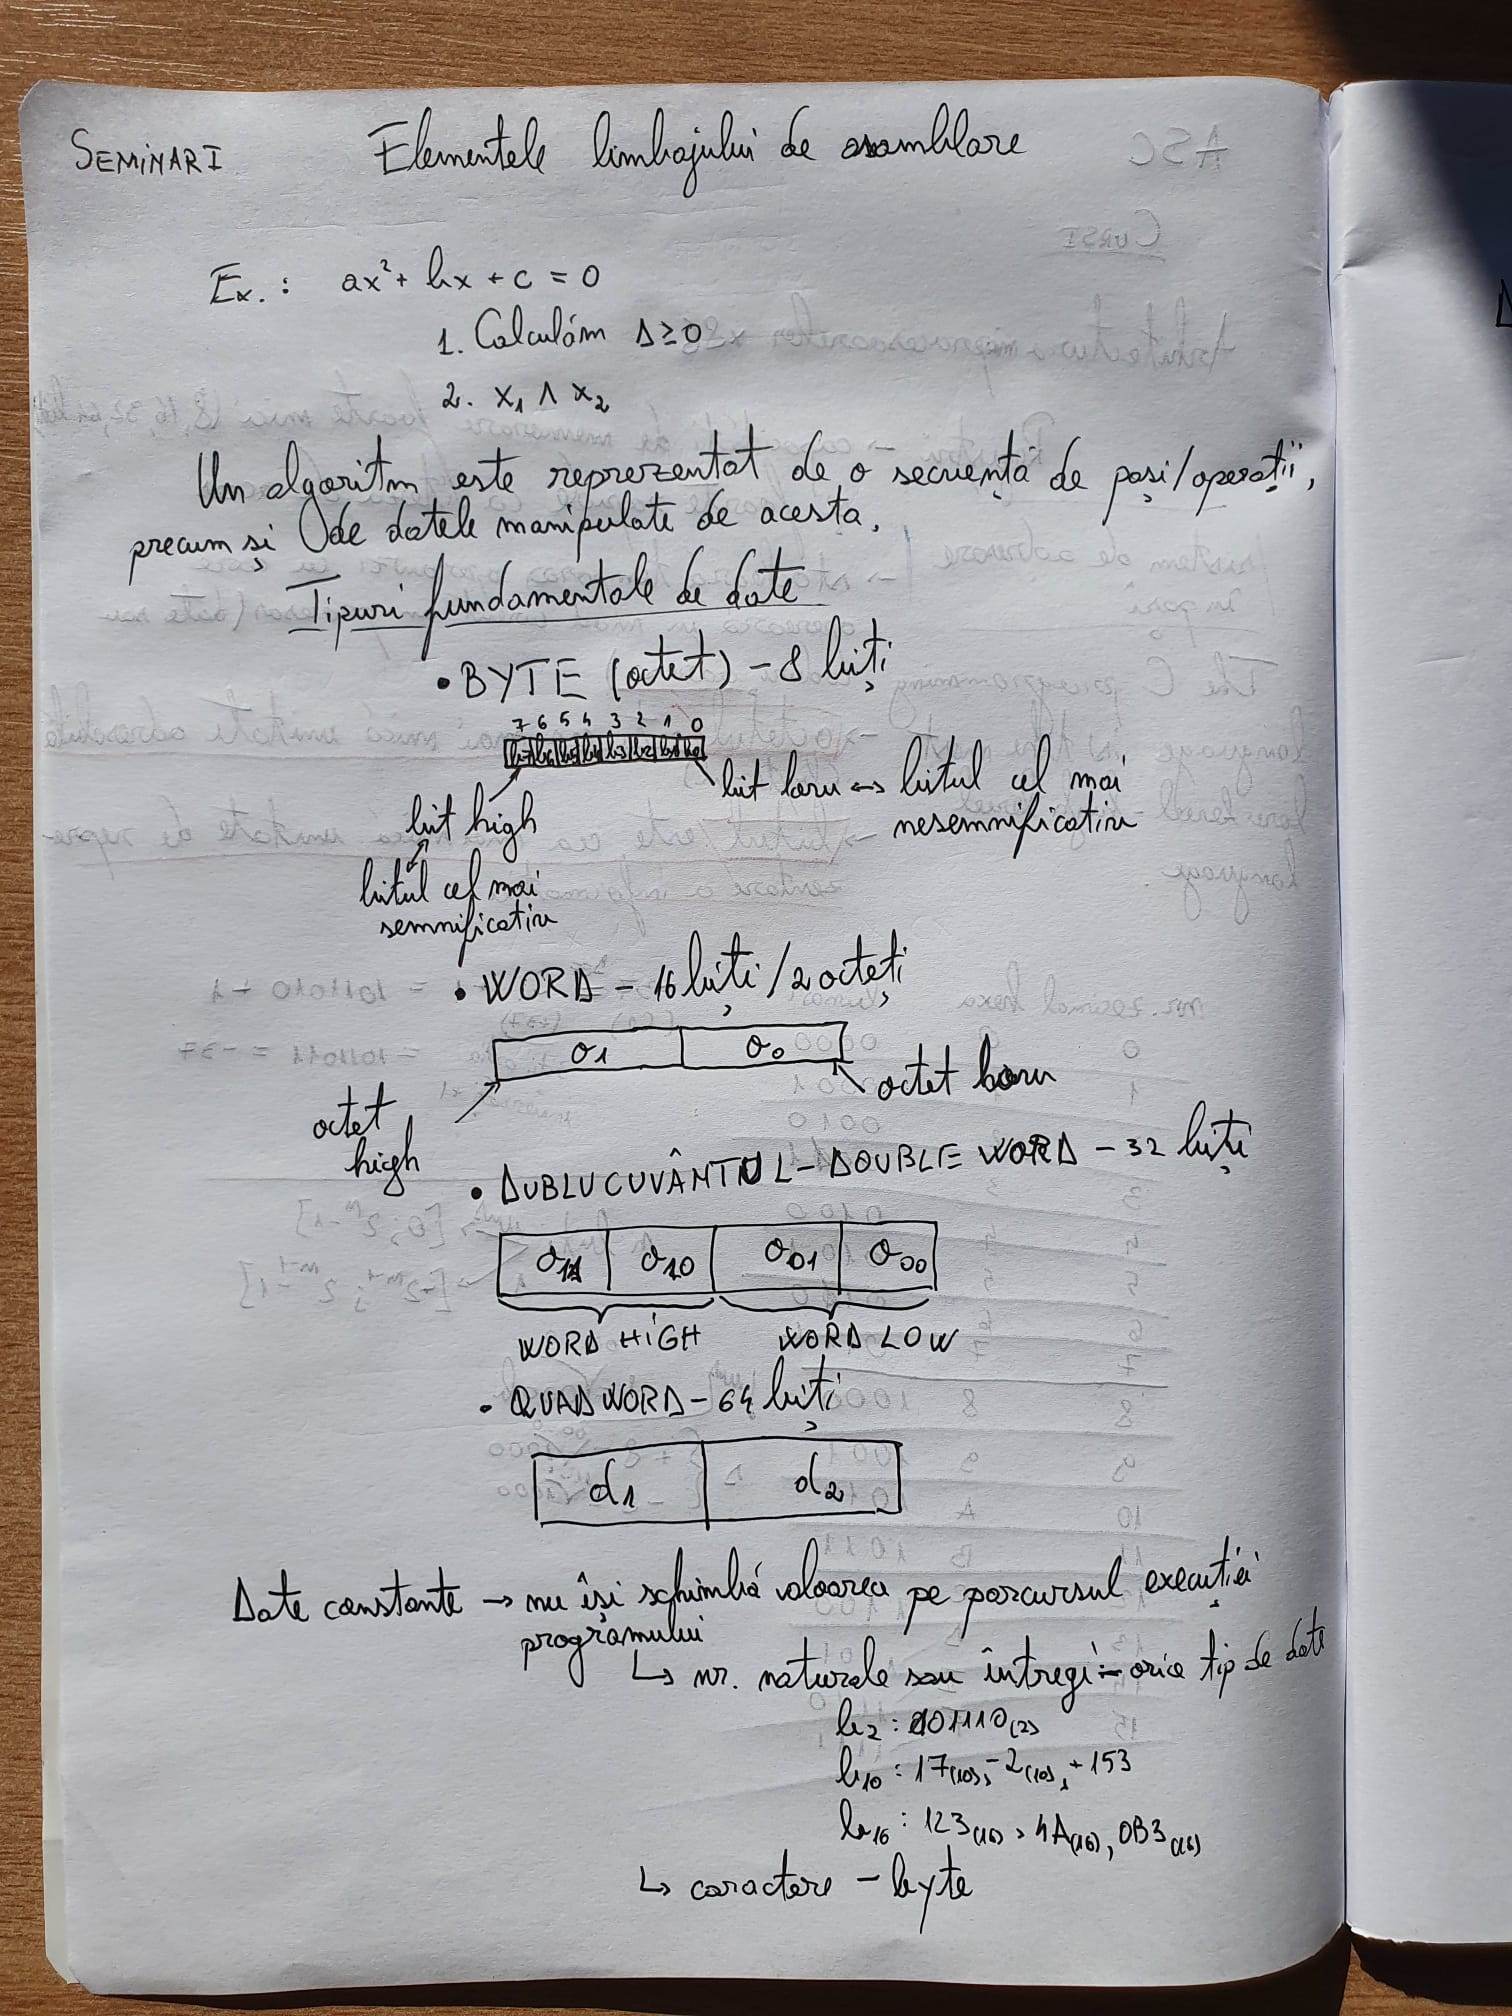 SEMINAR I
Elementele limbajului de asamblare
Ex. : ax² + bx + c = 0
1. Calculăm Δ ≥ 0
2. x₁ ∧ x₂
Un algoritm este reprezentat de o secvență de pași/operații,
precum și de datele manipulate de acesta.
Tipuri fundamentale de date
• BYTE (octet) – 8 biți
7 6 5 4 3 2 1 0
b7 b6 b5 b4 b3 b2 b1 b0
bit low ↔ bitul cel mai
nesemnificativ
bit high
bitul cel mai
semnificativ
• WORD – 16 biți / 2 octeți
o1 o0
octet low
octet
high
• DUBLUCUVÂNTUL – DOUBLE WORD – 32 biți
o11 o10 o01 o00
WORD HIGH WORD LOW
• QUADWORD – 64 biți
d1 d2
Date constante → nu își schimbă valoarea pe parcursul execuției
programului
↳ nr. naturale sau întregi – orice tip de date
b₂ : 101110₍₂₎
b₁₀ : 17₍₁₀₎, -2₍₁₀₎, +153
b₁₆ : 123₍₁₆₎, 4A₍₁₆₎, 0B3₍₁₆₎
↳ caractere – byte